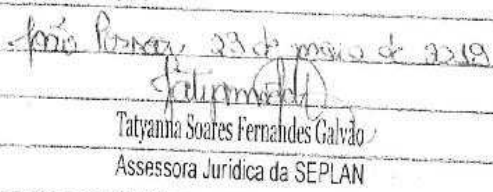 João Pessoa, 23 de maio de 2019
Tatyanna Soares Fernandes Galvão
Assessora Juridica da SEPLAN